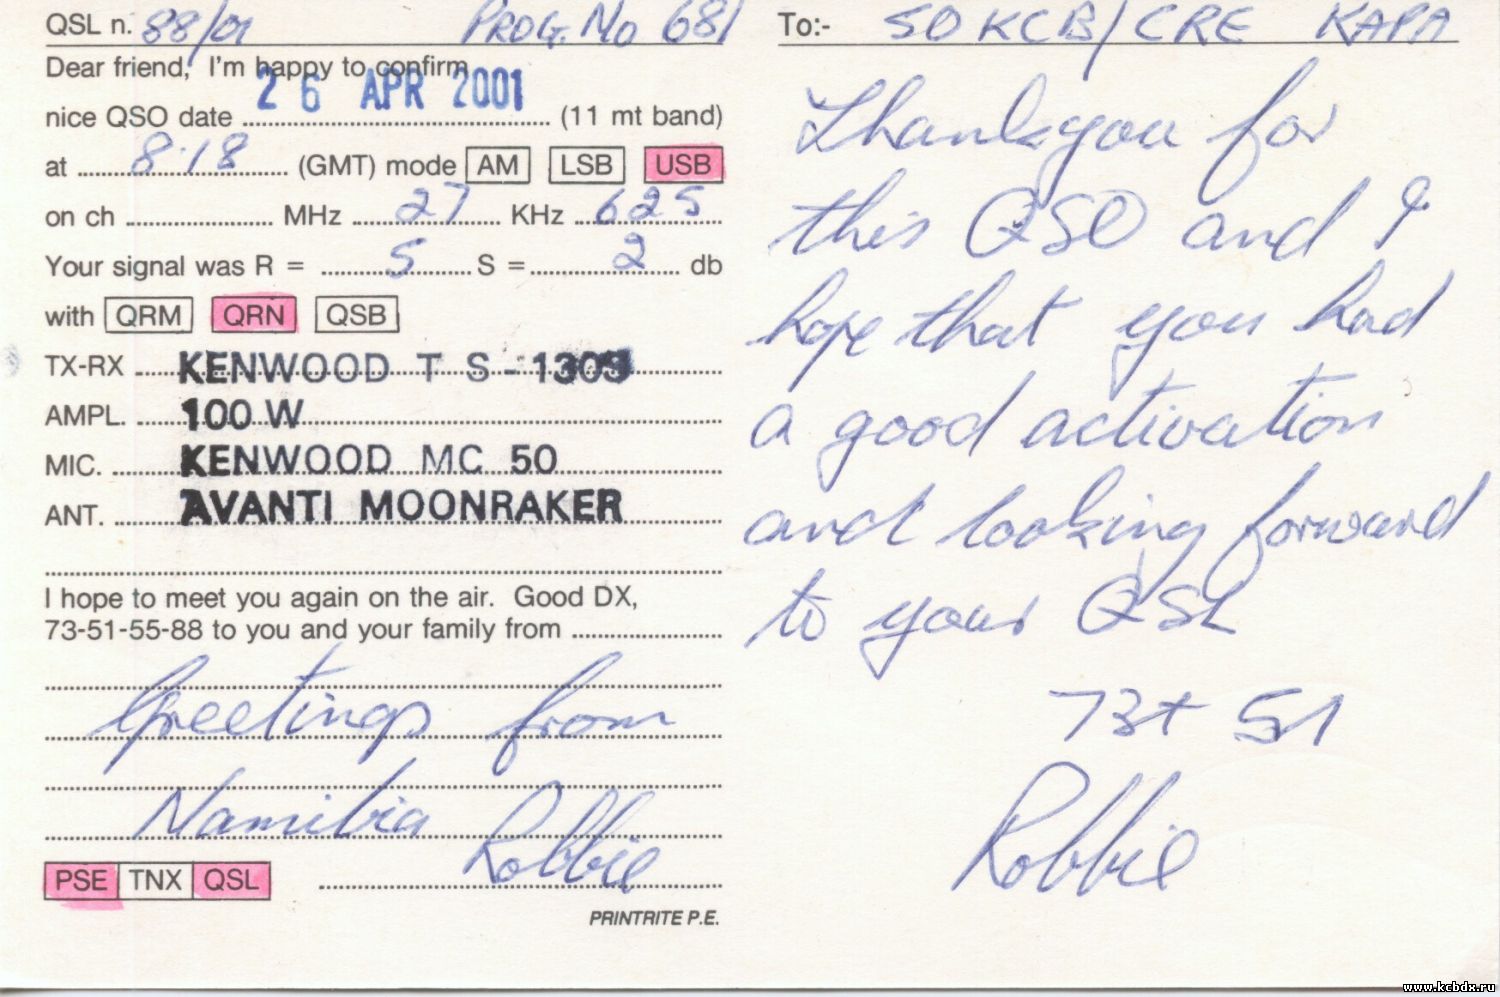 QSL n. 88/01 PROG. No 681
Dear friend, I'm happy to confirm
nice QSO date 26 APR 2001 (11 mt band)
at 8.18 (GMT) mode AM LSB USB
on ch MHz 27 KHz 625
Your signal was R = 5 S = 2 db
with QRM QRN QSB
TX-RX KENWOOD TS-130S
AMPL. 100 W
MIC. KENWOOD MC 50
ANT. AVANTI MOONRAKER
I hope to meet you again on the air. Good DX,
73-51-55-88 to you and your family from
Greetings from
Namibia Robbie
PSE TNX QSL
PRINTRITE P.E.
To:- 50 KCB/CRE KAPA
Thankyou for
this QSO and I
hope that you had
a good activation
and looking forward
to your QSL
73+ 51
Robbie
www.kcbdx.ru